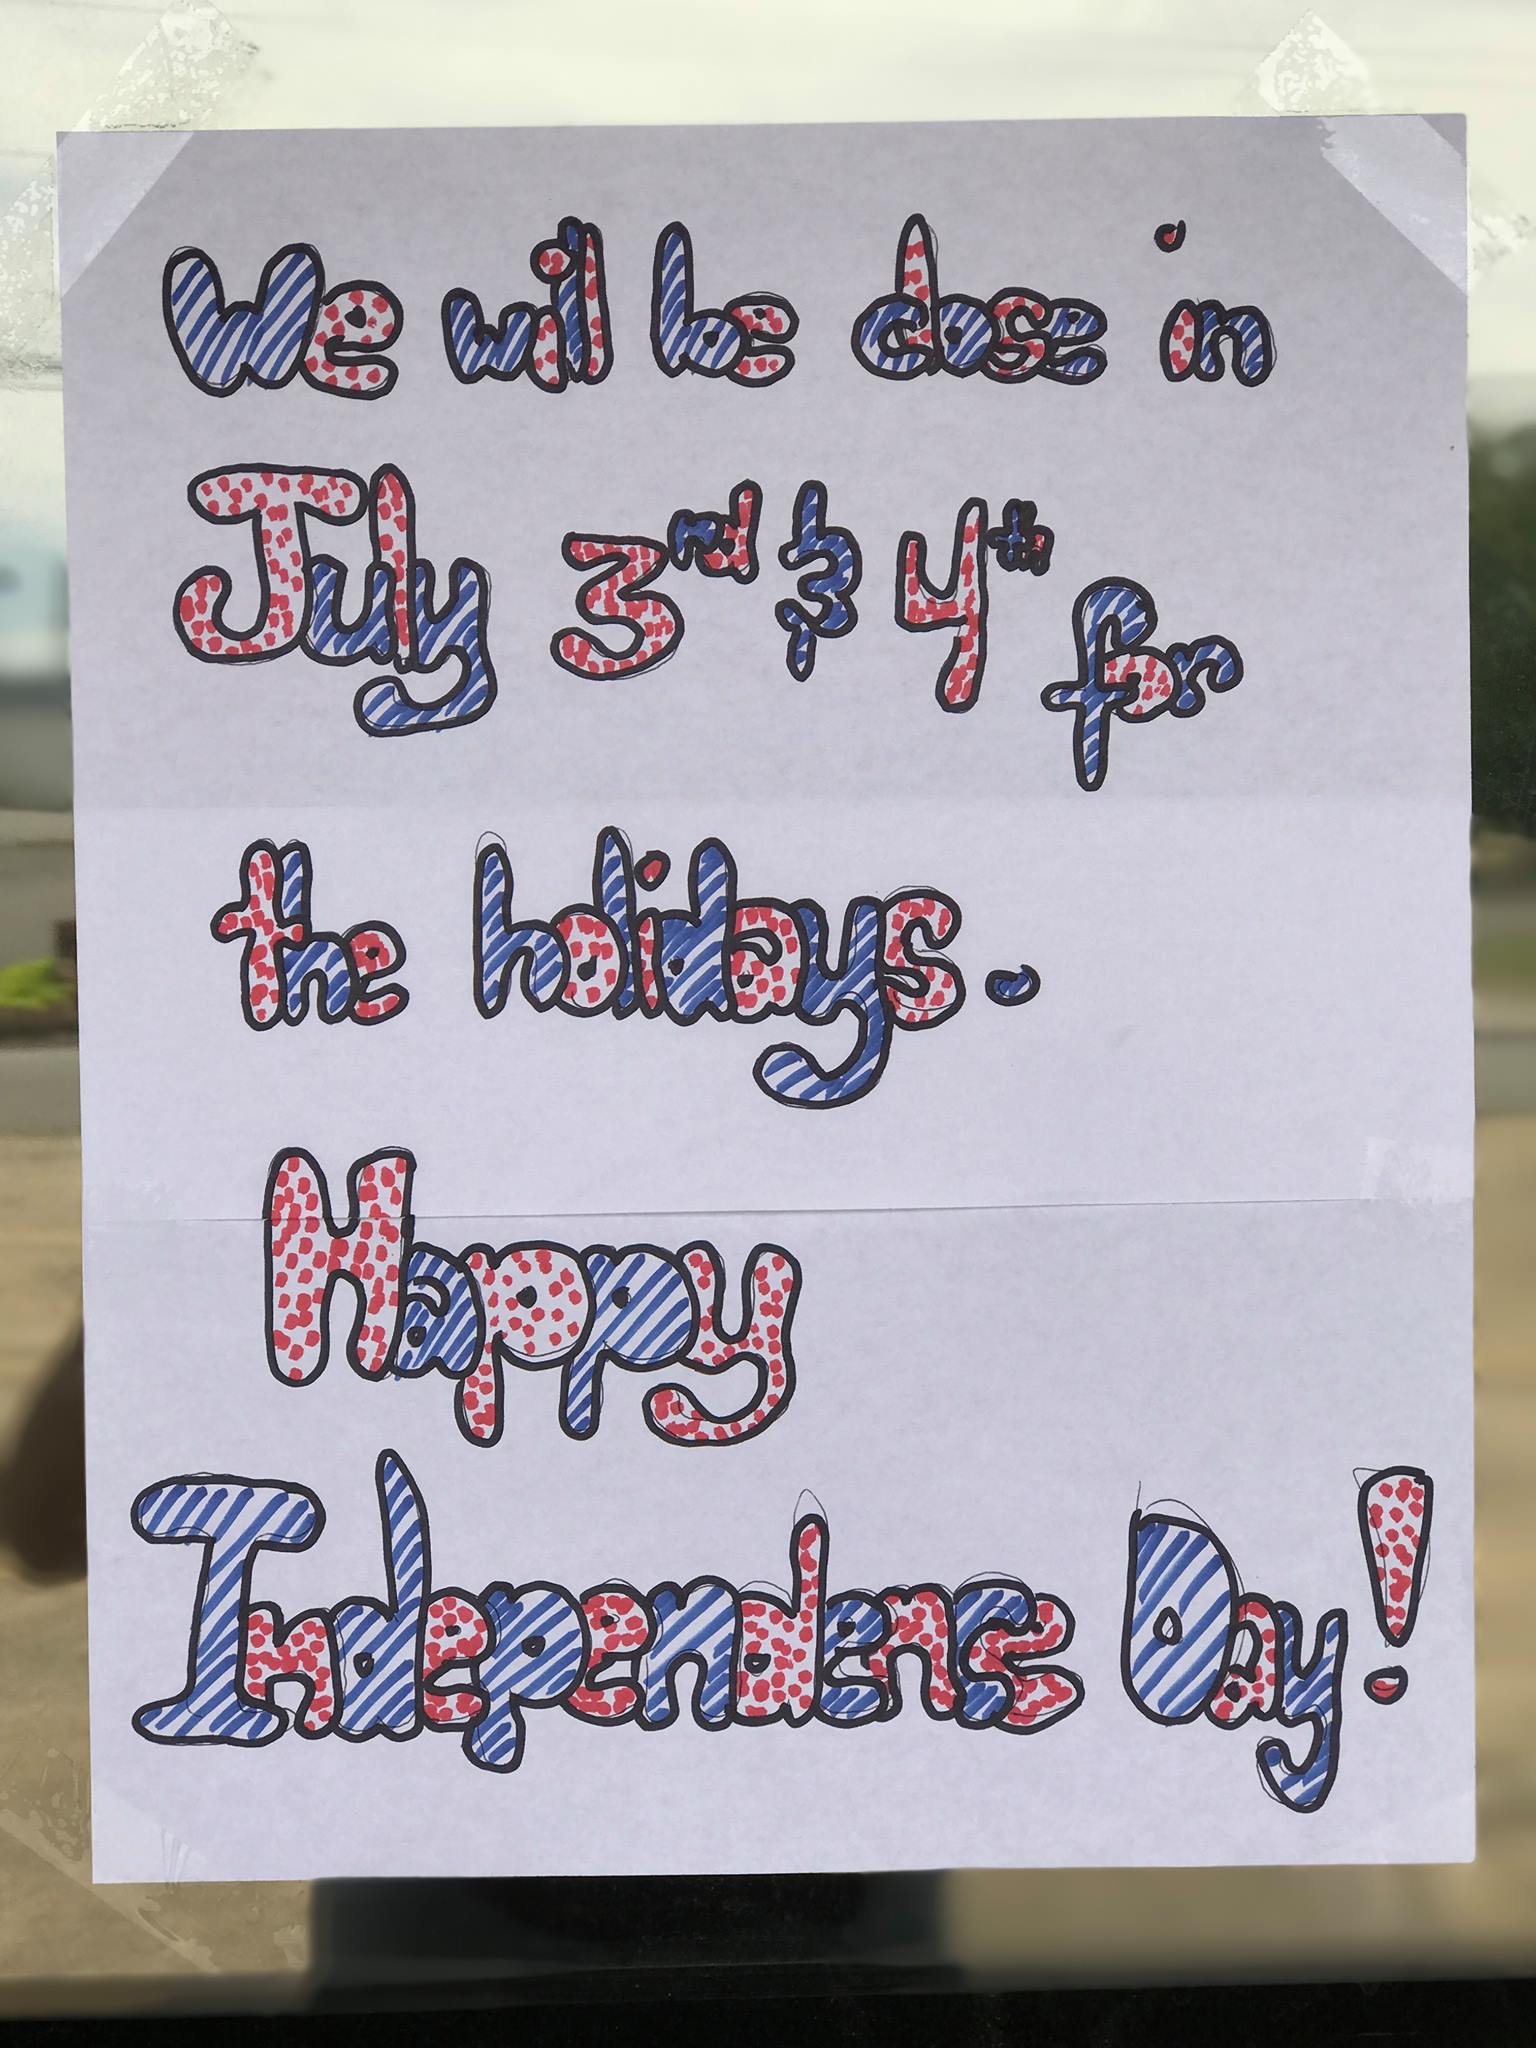 We will be close in
July 3rd & 4th for
the holidays.
Happy
Independense Day!